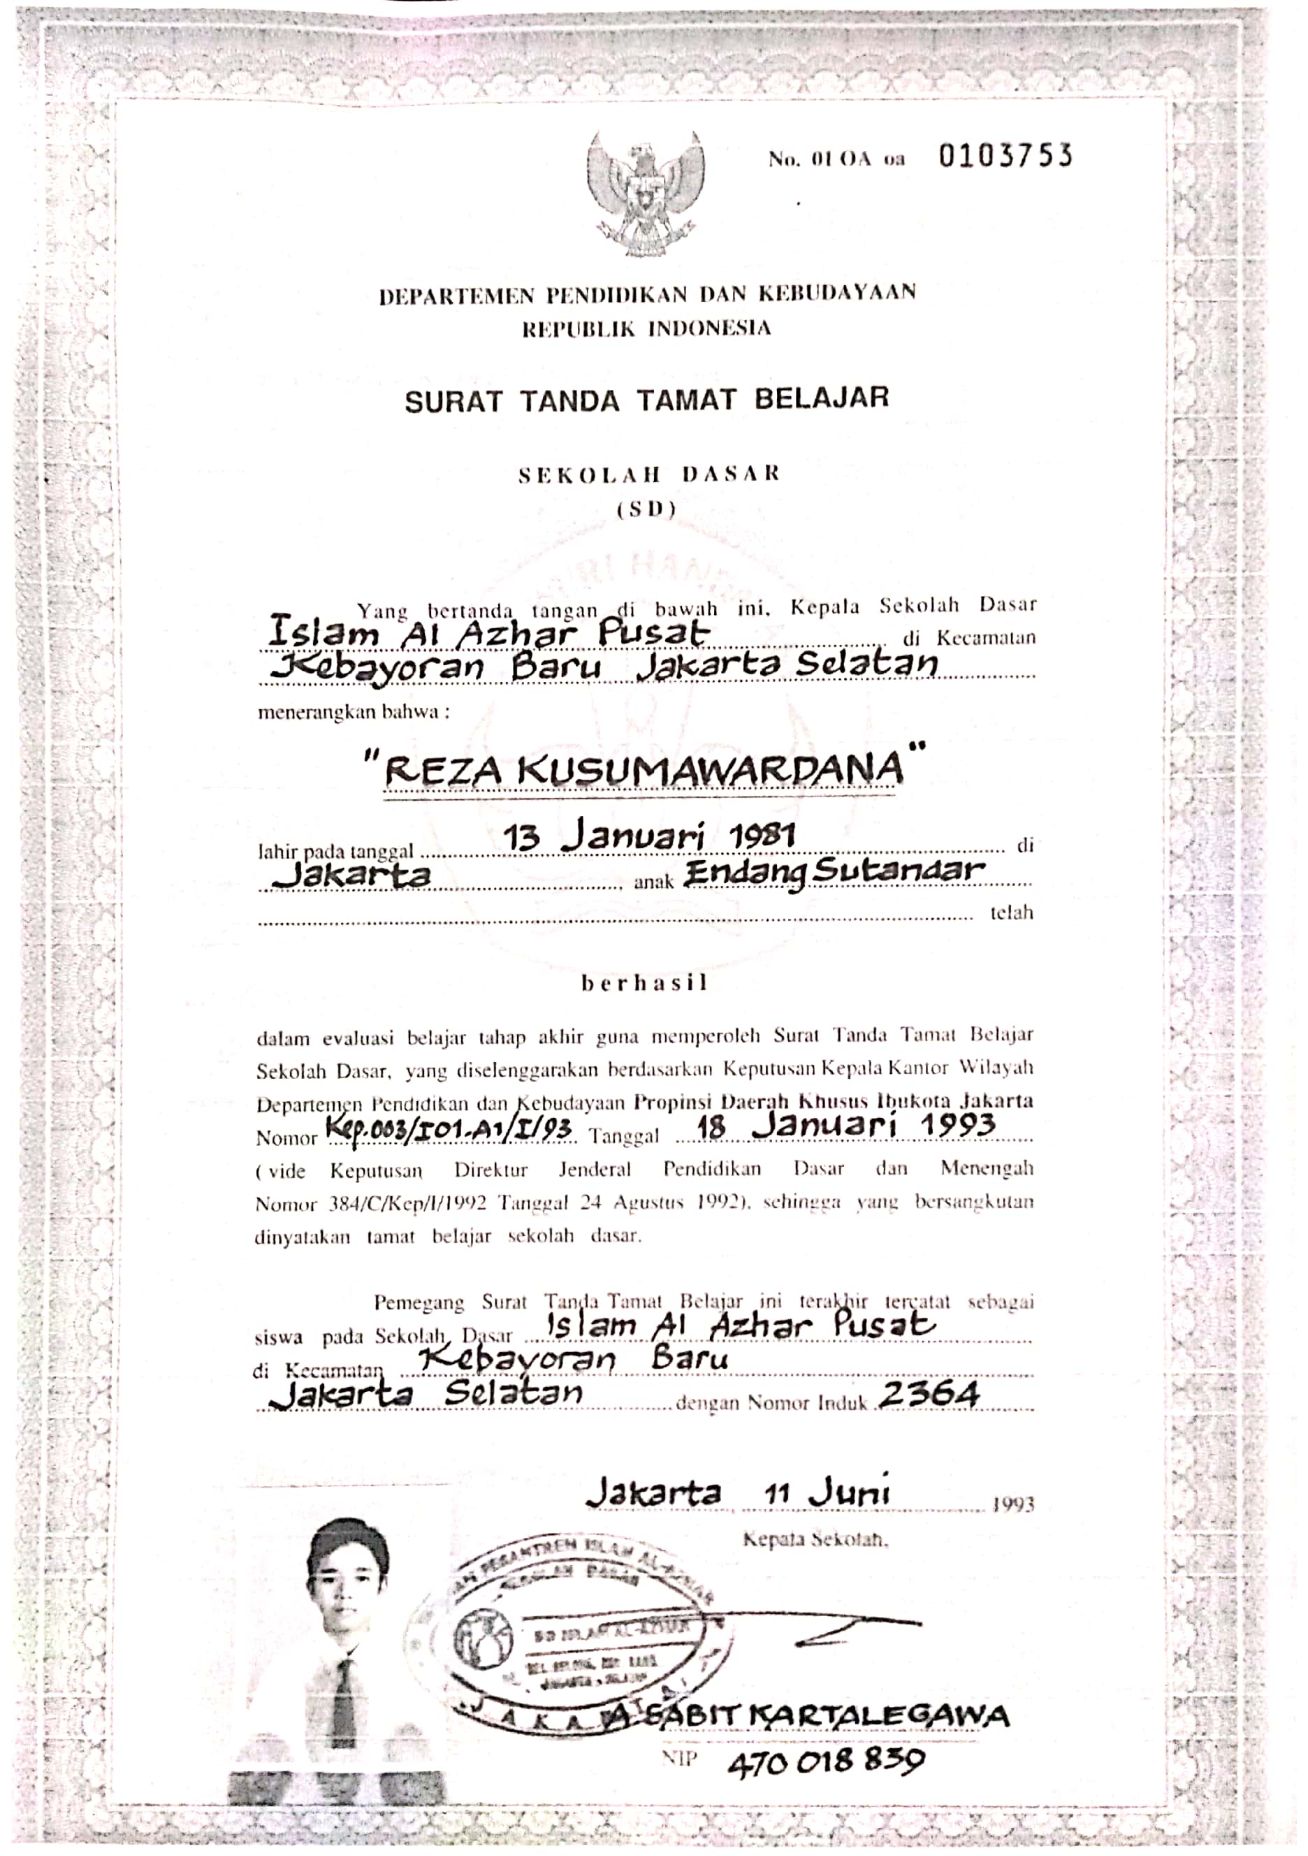 No. 01 OA oa 0103753
DEPARTEMEN PENDIDIKAN DAN KEBUDAYAAN
REPUBLIK INDONESIA
SURAT TANDA TAMAT BELAJAR
SEKOLAH DASAR
(SD)
Yang bertanda tangan di bawah ini, Kepala Sekolah Dasar
Islam Al Azhar Pusat di Kecamatan
Kebayoran Baru Jakarta Selatan
menerangkan bahwa :
"REZA KUSUMAWARDANA"
lahir pada tanggal 13 Januari 1981 di
Jakarta, anak Endang Sutandar
telah
berhasil
dalam evaluasi belajar tahap akhir guna memperoleh Surat Tanda Tamat Belajar
Sekolah Dasar, yang diselenggarakan berdasarkan Keputusan Kepala Kantor Wilayah
Departemen Pendidikan dan Kebudayaan Propinsi Daerah Khusus Ibukota Jakarta
Nomor Kep.003/I01.A1/I/93 Tanggal 18 Januari 1993
( vide Keputusan Direktur Jenderal Pendidikan Dasar dan Menengah
Nomor 384/C/Kep/I/1992 Tanggal 24 Agustus 1992), sehingga yang bersangkutan
dinyatakan tamat belajar sekolah dasar.
Pemegang Surat Tanda Tamat Belajar ini terakhir tercatat sebagai
siswa pada Sekolah Dasar Islam Al Azhar Pusat
di Kecamatan Kebayoran Baru
Jakarta Selatan dengan Nomor Induk 2364
Jakarta, 11 Juni 1993
Kepala Sekolah,
PESANTREN ISLAM AL-AZHAR
SEKOLAH DASAR
SD ISLAM AL-AZHAR
JAKARTA - SELATAN
JAKARTA
A SABIT KARTALEGAWA
NIP 470 018 839